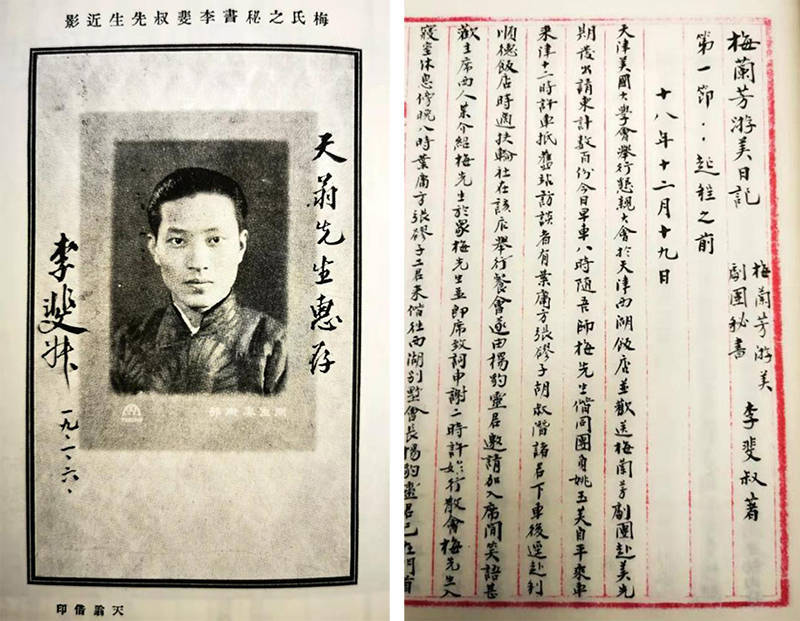 梅氏之秘書李斐叔先生近影
天翁先生惠存
李斐叔
一九、二、六、
天翁借印
梅蘭芳游美日記
梅蘭芳游美
劇團秘書
李斐叔著
第一節：起程之前
十八年十二月十九日
天津美國大學會舉行懇親大會於天津西湖飯店並歡送梅蘭芳劇團赴美先
期發出請柬計數百份今日早車八時隨吾師梅先生偕同團員姚玉芙自平乘車
來津十二時許車抵舊站訪談者有葉庸方張繆子胡叔階諸君下車後逕赴利
順德飯店時適扶輪社在該店舉行餐會遂由楊豹靈君邀請加入席間笑語甚
歡主席西人某介紹梅先生於眾梅先生並即席致詞申謝二時許始行散會梅先生入
寢室休息傍晚八時葉庸方張繆子二君來偕往西湖別墅會長楊豹靈君已在門首